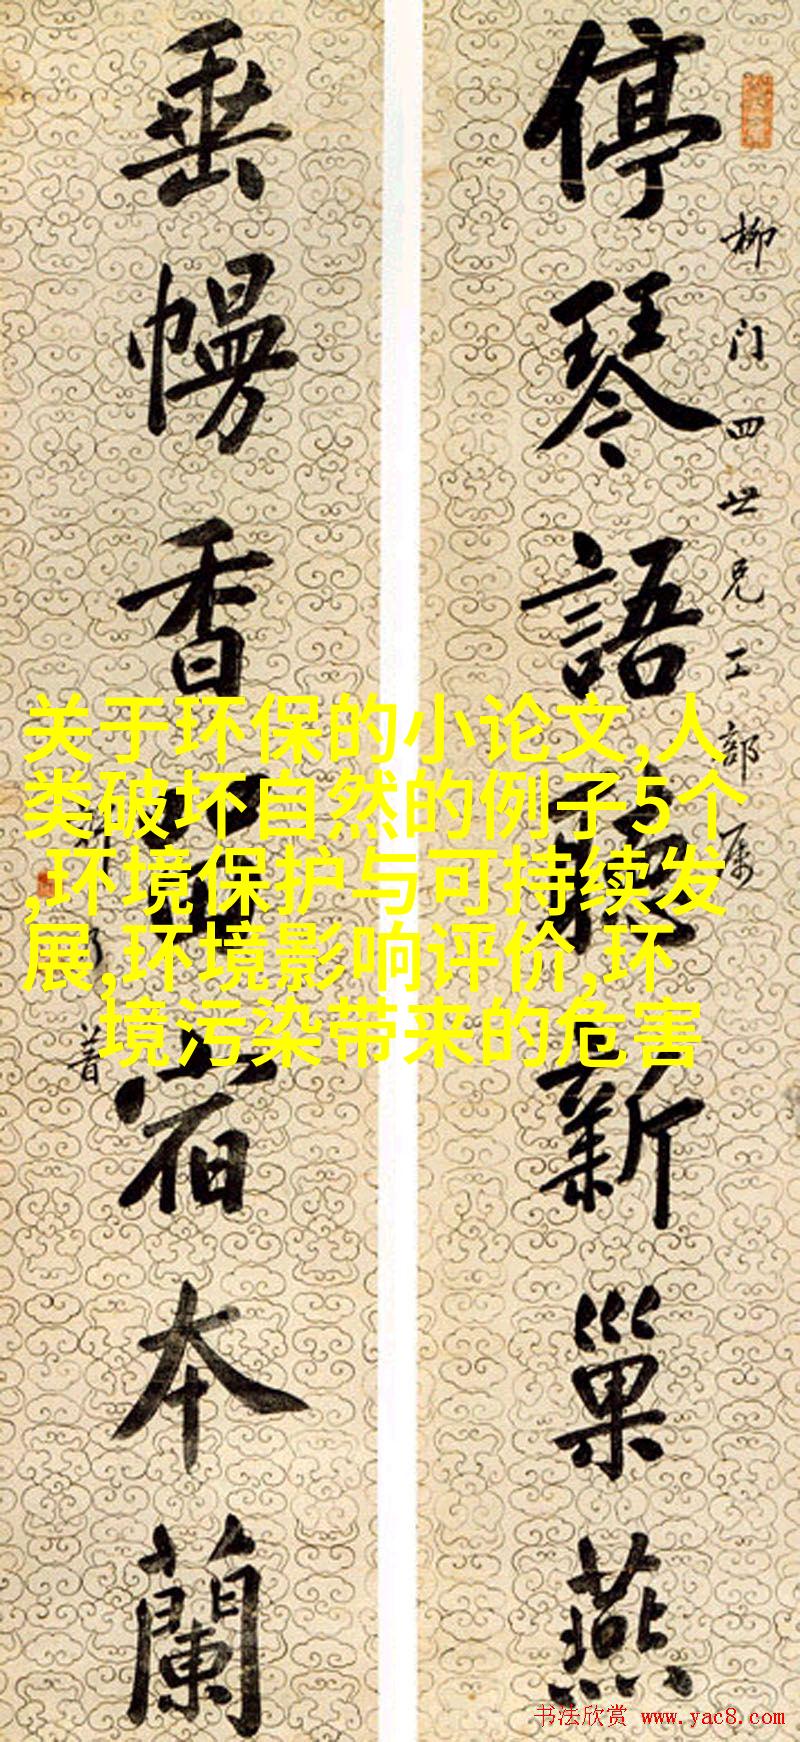 停琴語聽新巢燕
柳门四世兄工部属
垂幔香留宿本蘭
关于环保的小论文,人
类破坏自然的例子5个
,环境保护与可持续发
展,环境影响评价,环
境污染带来的危害
书法欣赏 www.yac8.com